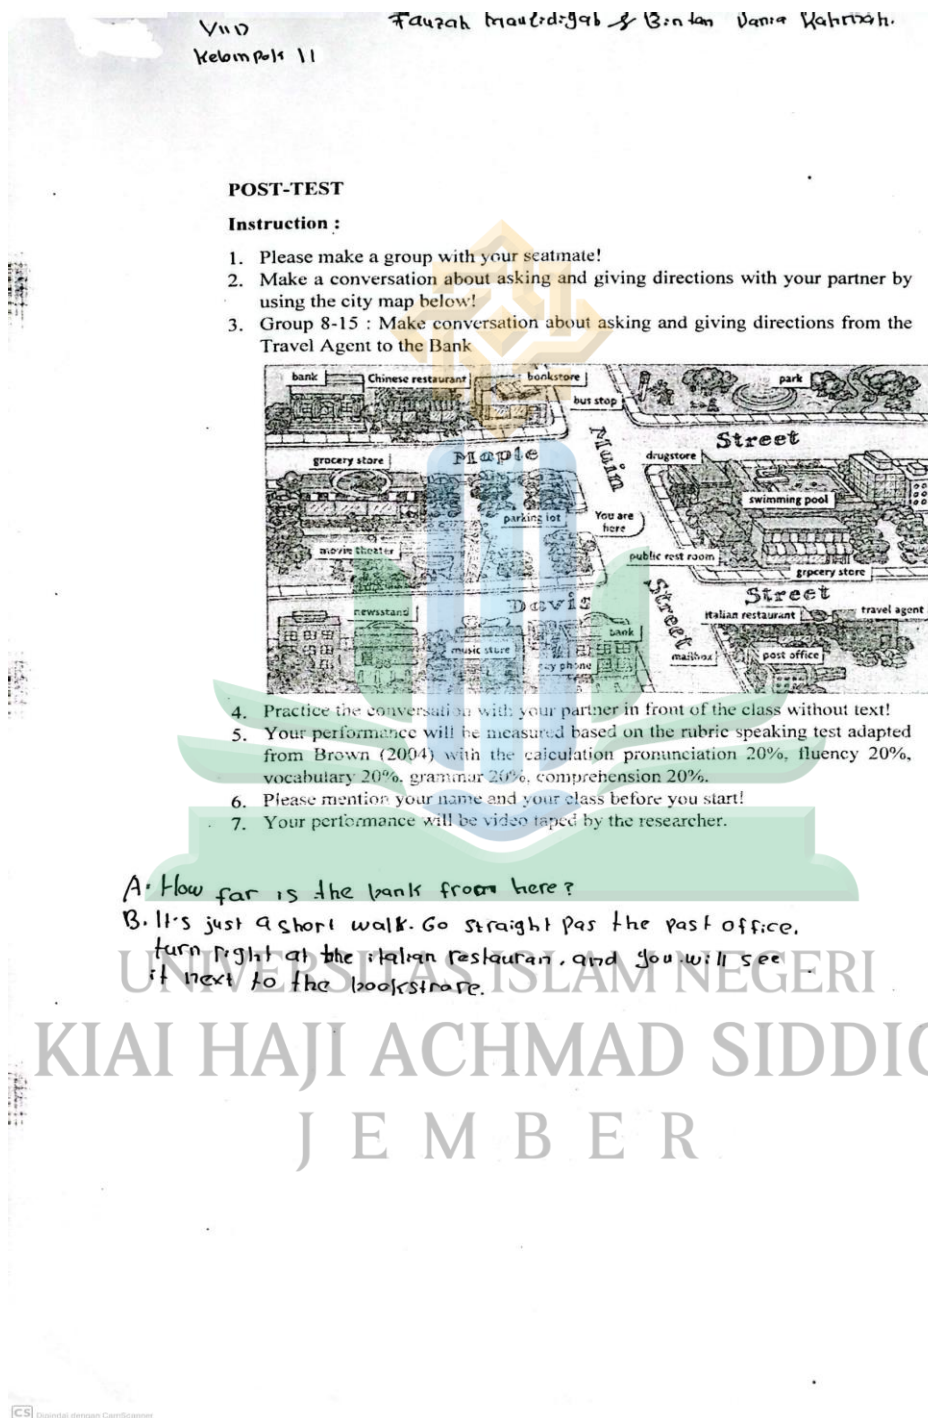 VIID
Kelompok 11
Fauzah Maulidiyah & Bintan Vania Rahmah.
POST-TEST
Instruction :
1. Please make a group with your seatmate!
2. Make a conversation about asking and giving directions with your partner by
using the city map below!
3. Group 8-15 : Make conversation about asking and giving directions from the
Travel Agent to the Bank
bank
Chinese restaurant
bookstore
park
bus stop
Main
Street
Maple
grocery store
drugstore
swimming pool
parking lot
You are
here
movie theater
public rest room
grocery store
Street
Davis
Street
newsstand
italian restaurant
travel agent
bank
music store
mailbox
post office
pay phone
4. Practice the conversation with your partner in front of the class without text!
5. Your performance will be measured based on the rubric speaking test adapted
from Brown (2004) with the calculation pronunciation 20%, fluency 20%,
vocabulary 20%, grammar 20%, comprehension 20%.
6. Please mention your name and your class before you start!
7. Your performance will be video taped by the researcher.
A. How far is the bank from here?
B. It's just a short walk. Go straight pas the past office.
turn right at the italian restauran, and you will see
it next to the bookstrore.
UNIVERSITAS ISLAM NEGERI
KIAI HAJI ACHMAD SIDDIQ
JEMBER
CS Dipindai dengan CamScanner